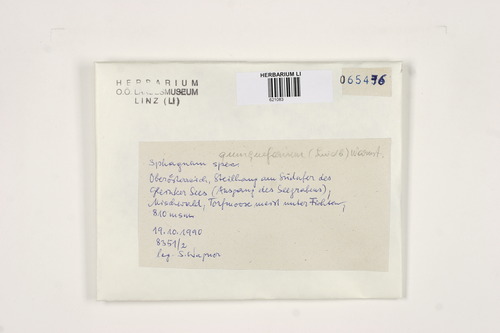 HERBARIUM
O.Ö. LANDESMUSEUM
LINZ (LI)
HERBARIUM LI
621083
065476
quinquefarium (Lindb.) Warnst.
Sphagnum spec.
Oberösterreich, Steilhang am Südufer des
Gleinker Sees (Ausgang des Seegrabens),
Mischwald, Torfmoose meist unter Fichten,
810 msm
19.10.1990
8351/2
leg. S. Wagner